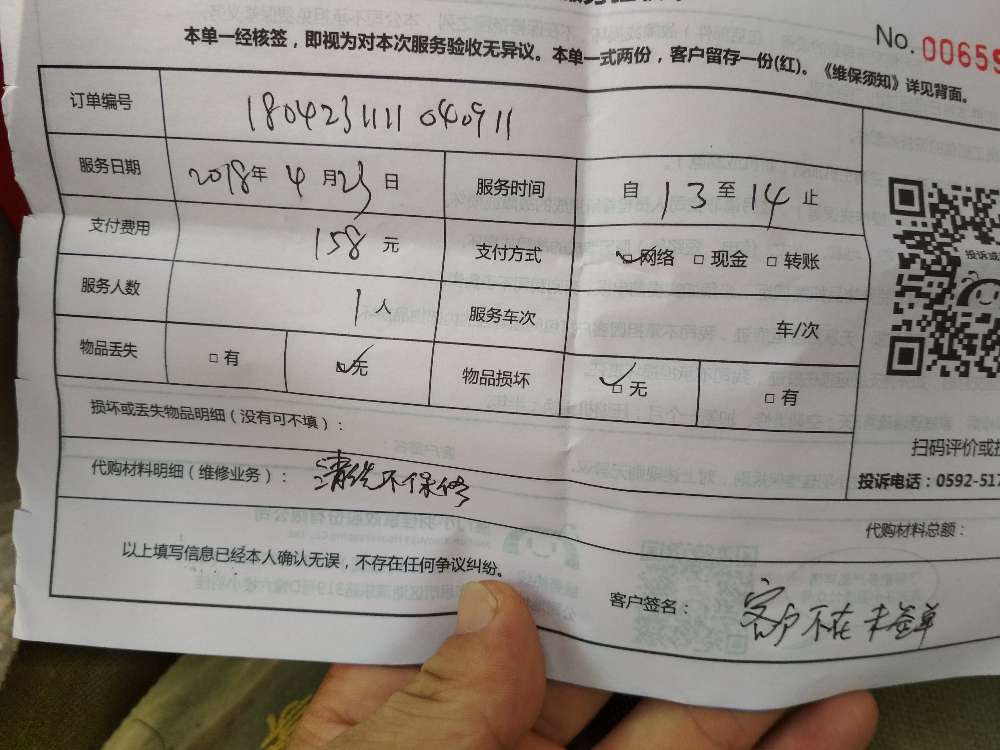 No. 0065
本单一经核签，即视为对本次服务验收无异议。本单一式两份，客户留存一份(红)。《维保须知》详见背面。
订单编号 1804231111040911
服务日期 2018年 4 月 23 日 服务时间 自 13 至 14 止
支付费用 158 元 支付方式 网络 现金 转账
服务人数 1 人 服务车次 车/次
物品丢失 有 无 物品损坏 无 有
投诉或
损坏或丢失物品明细（没有可不填）：
扫码评价或投
代购材料明细（维修业务）：清洗不保修
投诉电话：0592-517
代购材料总额：
以上填写信息已经本人确认无误，不存在任何争议纠纷。
客户签名：客户不在 未签单